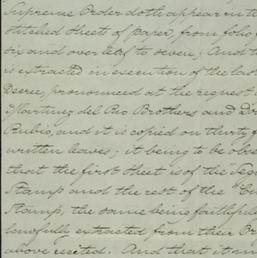 Supreme Order doth appear in t
stitched sheets of paper, from folio
six and over leaf to seven; And t
is extracted in execution of the las
Decree, pronounced at the request
Martinez del Rio Brothers and D
Rubio, and it is copied on thirty
written leaves; it being to be
that the first sheet is of the
Stamp and the rest of the
Stamp, the same being faithful
lawfully extracted from their
above recited. And that it m